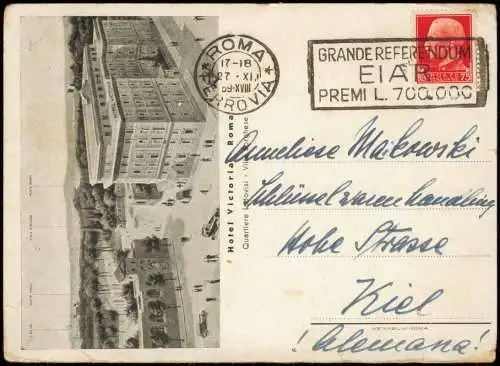 ROMA
17-18
27·XII
39-XVIII
FERROVIA
GRANDE REFERENDUM
EIAR
PREMI L. 700.000
Hotel Victoria - Roma
Quartiere
Anneliese Makowski
Schlüsselwarenhandlung
Hohe Strasse
Kiel
(Alemana!)